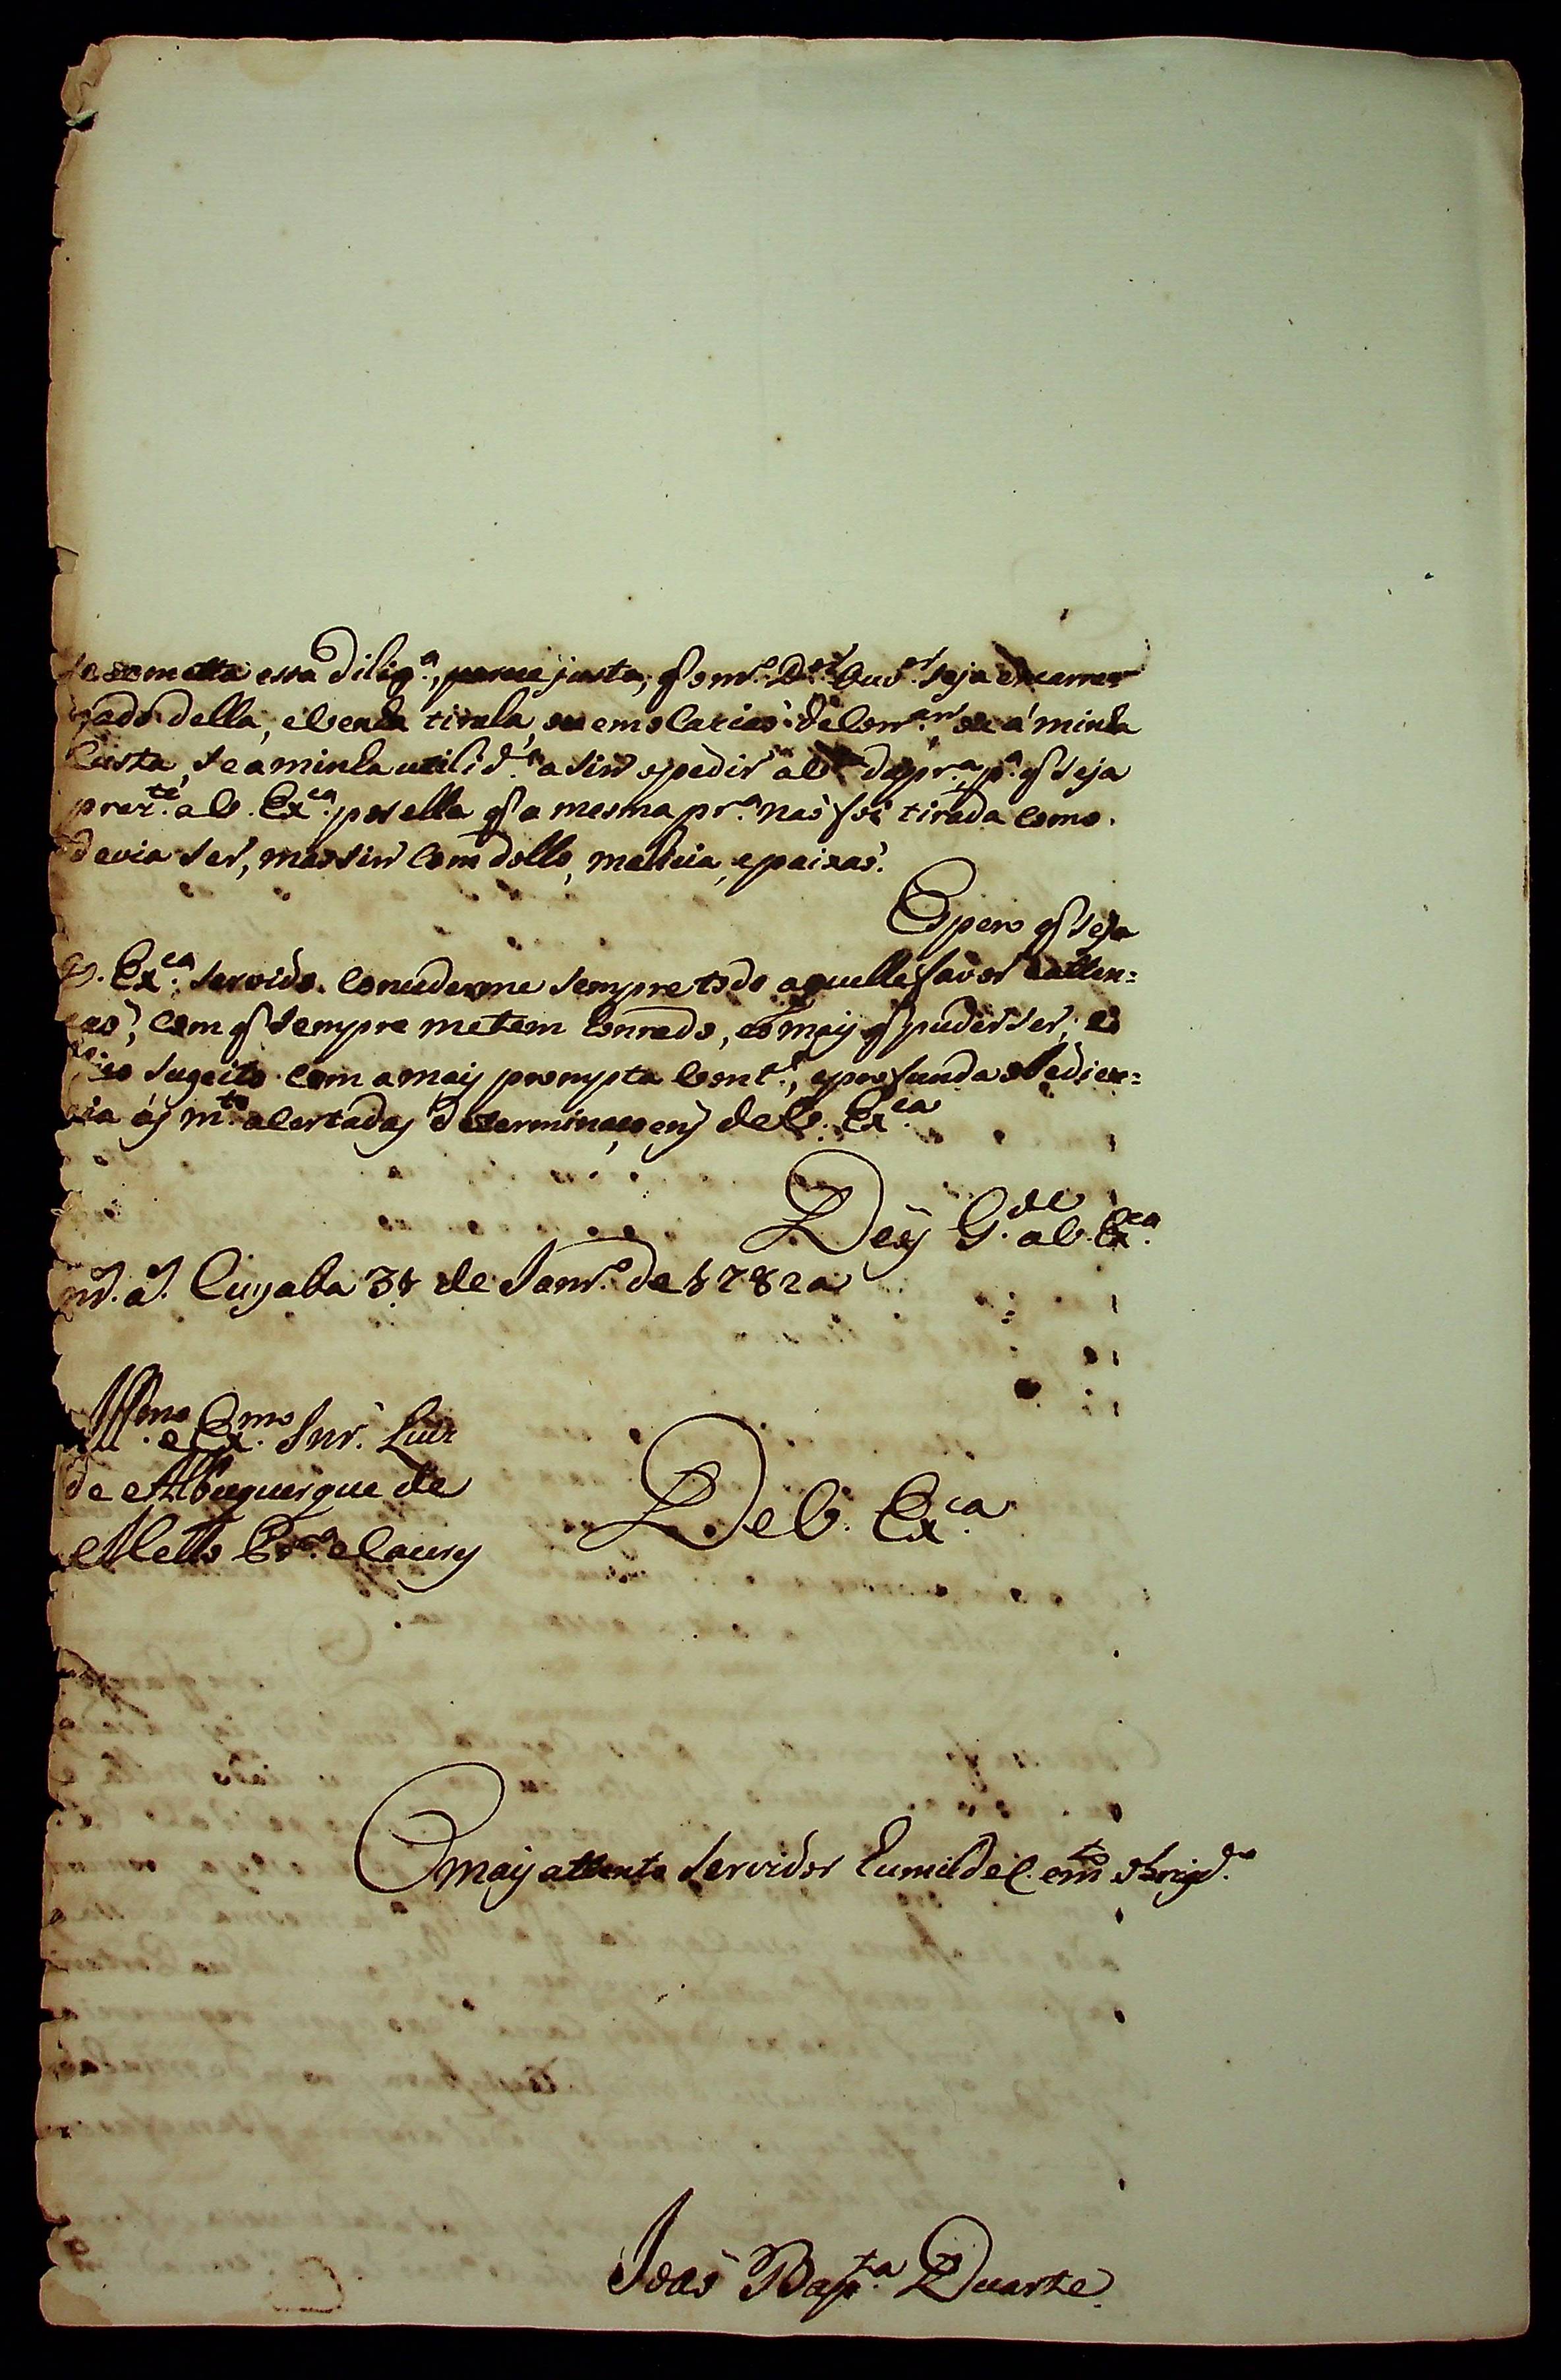 se cometta essa dilig.ª, parece justa, q̃ o mr.º D.or Ouv.or seja encarre
gado della, e venha tirala, ou em o Larias de Com.an se á minha
Custa, se a minha utilid.e asim o pedir a V. da pr.ª, p.ª q̃ seja
prez.te a V. Ex.ca por ella q̃ a mesma pr.ª naõ foi tirada como
devia ser, mas sim com dollo, malicia, e paixaõ.
Espero q̃ seja
V. Ex.ca servido concederme sempre todo aquelle favor e atten=
çaõ, com q̃ sempre me tem honrado, e o mais q̃ puder ser, e
fico sugeito com a mais prompta vont.e, e profunda obedien=
cia ás m.to acertadas determinaçoens de V. Ex.ca
D.s G.de a V. Ex.ca
m.s a.s Cuyaba 31 de Janr.º de 1782 a
Ill.mo e Ex.mo Snr. Luiz
de Albuquerque de
Mello Pr.ª e Caceres
De V. Ex.ca
O mais attento servidor humilde e m.to obrigd.º
Joaõ Bap.ta Duarte